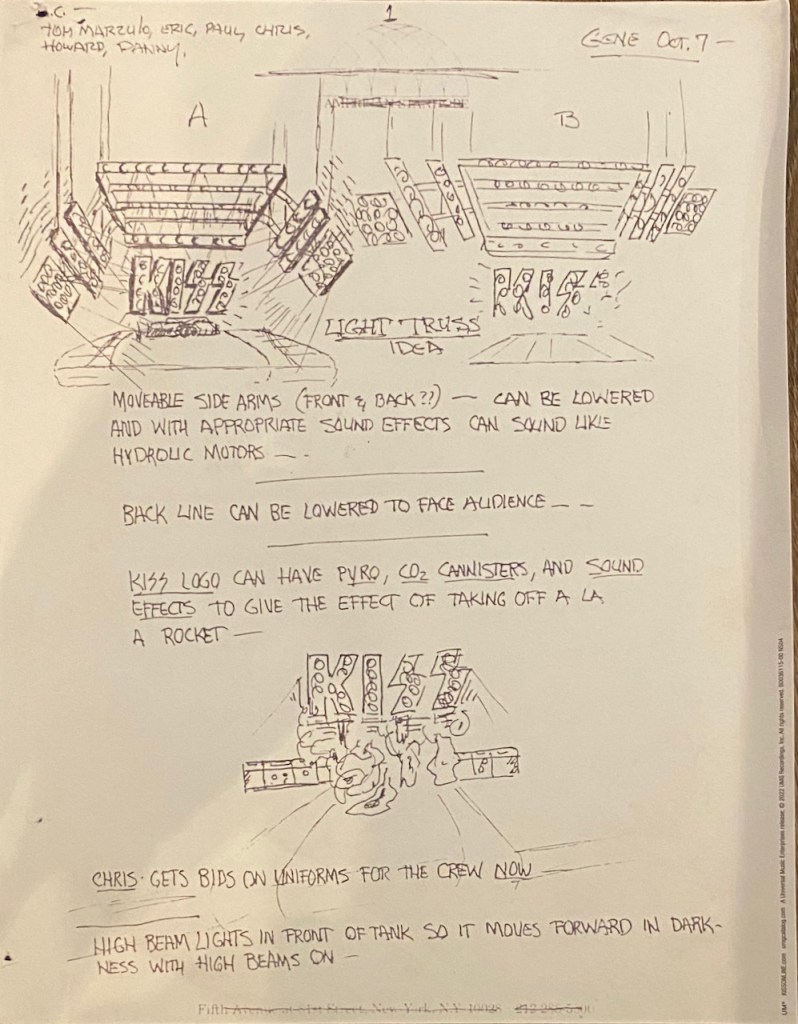 1
TOM MARZULO, ERIC, PAUL, CHRIS,
HOWARD, DANNY.
GENE OCT. 7 —
A
B
KISS
KISS
LIGHT TRUSS
IDEA
MOVEABLE SIDE ARMS (FRONT & BACK??) — CAN BE LOWERED
AND WITH APPROPRIATE SOUND EFFECTS CAN SOUND LIKE
HYDROLIC MOTORS — -
BACK LINE CAN BE LOWERED TO FACE AUDIENCE — —
KISS LOGO CAN HAVE PYRO, CO2 CANNISTERS, AND SOUND
EFFECTS TO GIVE THE EFFECT OF TAKING OFF A LA
A ROCKET —
KISS
CHRIS - GETS BIDS ON UNIFORMS FOR THE CREW NOW
HIGH BEAM LIGHTS IN FRONT OF TANK SO IT MOVES FORWARD IN DARK-
NESS WITH HIGH BEAMS ON —
Fifth Avenue at 81st Street, New York, N.Y. 10028
KISSONLINE.com umgcatalog.com A Universal Music Enterprises release. © 2022 UMG Recordings, Inc. All rights reserved.